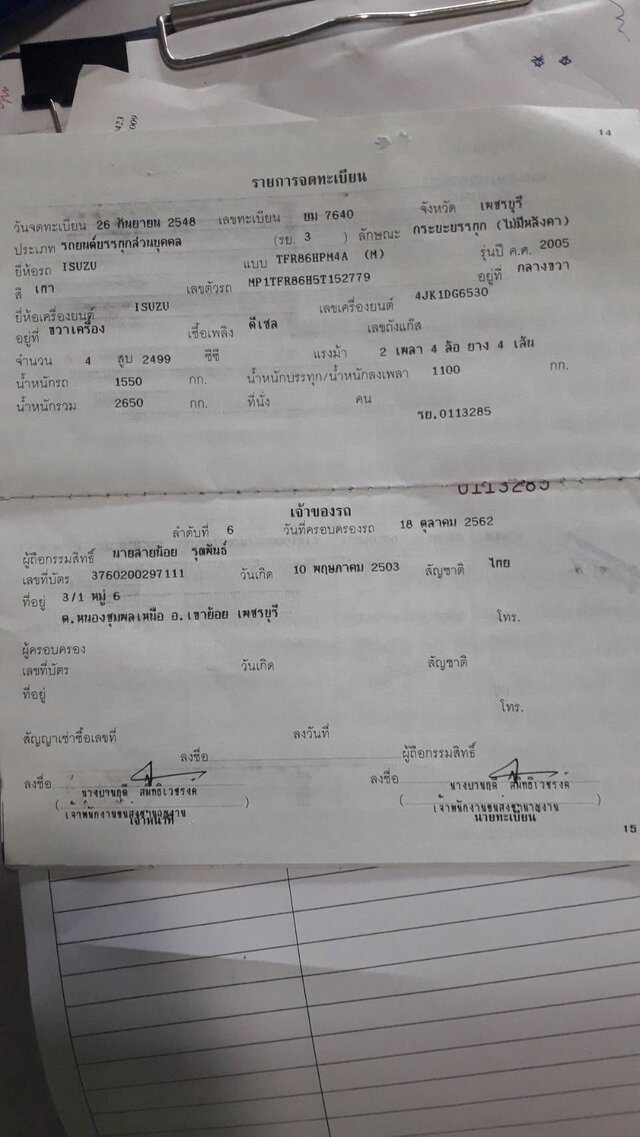 423
009
14
รายการจดทะเบียน
วันจดทะเบียน 26 กันยายน 2548 เลขทะเบียน ขม 7640 จังหวัด เพชรบุรี
ประเภท รถยนต์บรรทุกส่วนบุคคล (รย. 3 ) ลักษณะ กระบะบรรทุก (ไม่มีหลังคา)
ยี่ห้อรถ ISUZU แบบ TFR86HPM4A (M) รุ่นปี ค.ศ. 2005
สี เทา เลขตัวรถ MP1TFR86H5T152779 อยู่ที่ กลางขวา
ยี่ห้อเครื่องยนต์ ISUZU เลขเครื่องยนต์ 4JK1DG6530
อยู่ที่ ขวาเครื่อง เชื้อเพลิง ดีเซล เลขถังแก๊ส
จำนวน 4 สูบ 2499 ซีซี แรงม้า 2 เพลา 4 ล้อ ยาง 4 เส้น
น้ำหนักรถ 1550 กก. น้ำหนักบรรทุก/น้ำหนักลงเพลา 1100 กก.
น้ำหนักรวม 2650 กก. ที่นั่ง คน
รย.0113285
0113285
เจ้าของรถ
ลำดับที่ 6 วันที่ครอบครองรถ 18 ตุลาคม 2562
ผู้ถือกรรมสิทธิ์ นายสายน้อย รุณพันธ์
เลขที่บัตร 3760200297111 วันเกิด 10 พฤษภาคม 2503 สัญชาติ ไทย
ที่อยู่ 3/1 หมู่ 6
ต.หนองชุมพลเหนือ อ.เขาย้อย เพชรบุรี โทร.
ผู้ครอบครอง
เลขที่บัตร วันเกิด สัญชาติ
ที่อยู่
โทร.
สัญญาเช่าซื้อเลขที่ ลงวันที่
ลงชื่อ ผู้ถือกรรมสิทธิ์
ลงชื่อ ลงชื่อ
เจ้าพนักงานขนส่งชำนาญงาน เจ้าพนักงานขนส่งชำนาญงาน
เจ้าหน้าที่ นายทะเบียน
15